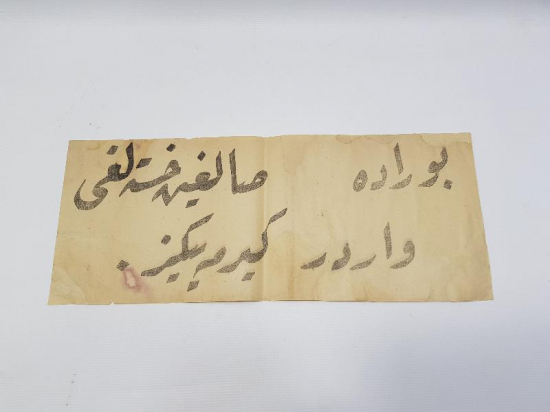 بوراده صالغين خسته لغى
واردر كيرمه يكيز.